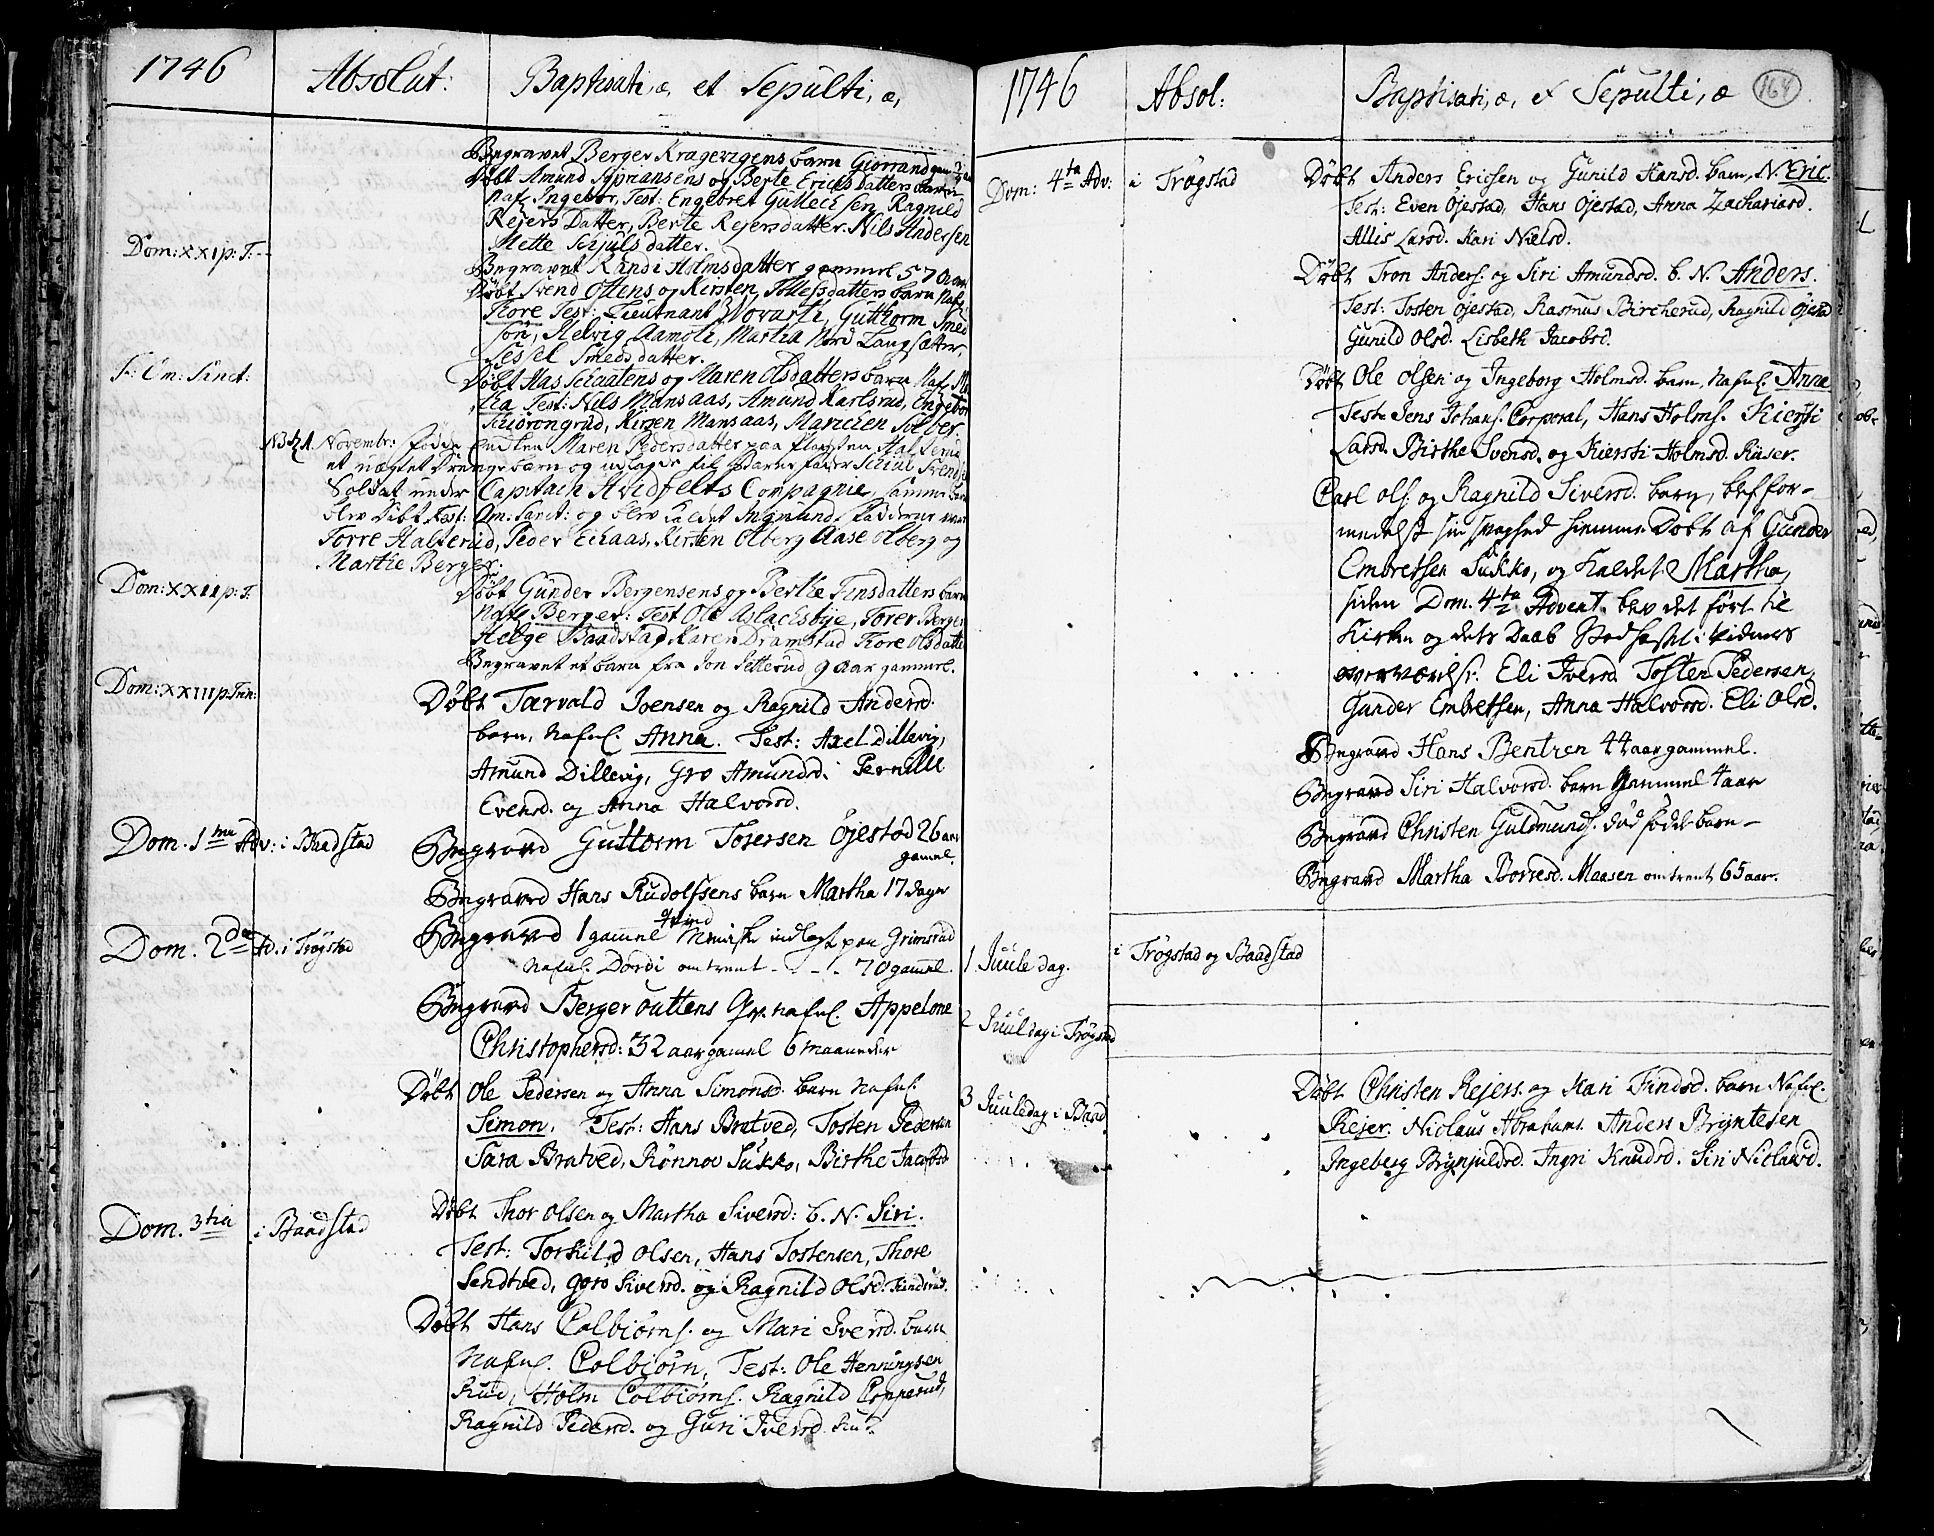 1746
Absolut:
Baptisati, æ, et Sepulti, æ,
Begravet Berger Kragerigens barn
Døbt Amund og Berte Erichsdatters barn
Naf. Ingebor, Test: Engebret Gullechsen, Ragnild
Rejers Datter, Berte Rejersdatter. Nils Andersen
Mette datter.
Dom: XXI p: T:
Begravet Randi Holmsdatter gammel 57 aar
Døbt Svend Ostens og Kirsten Tollefsdatters barn Naf.
Tore Test: Lieutnant Guttorm Smed
son, Helvig Aamoth, Martha Nord Langsætter,
Sessel Smedsdatter.
F: Om: Sanct:
Døbt Has og Maren Olsdatters barn Naf. Ma
tha Test: Nils Mansaas, Amund Karlsrud, Engebor
Kirsten Mansaas, Marichen Solber
Novembr: fødde Maren Pedersdatter paa Halfterud
et uægte Drengebarn og udlagde til Barnefader Svends
Soldat under Capitain Hvidfelts Compagnie, samme barn
blev Døbt Fest: Om: Sanct: og blev kaldet Ingmund, fadderne var
Torre Halfterud, Peder Echaas, Kirsten Olberg Aase Olberg og
Marthe Berger:
Dom: XXII p: T.
Døbt Gunder Bergensens og Berthe Finsdatters barn
Nafl. Berger: Test Ole Aslachsbye, Torer Berger
Helge Baadstad, Karen Dramstad Tore Olsdatte
Begravet et barn fra Jon Setterud 9 aar gammel.
Dom: XXIII p Trin:
Døbt Tarvald Joensen og Ragnild Andersd.
barn, Nafnl. Anna. Test: Axel Dillevig,
Amund Dillevig, Gro Amundsd. Pernille
Evensd. og Anna Halvorsd.
Dom. 1ma Adv: i Baadstad
Begraved Guttorm Torersen Øjestad 26 aar
gamel.
Begraved Hans Rudolfsens barn Martha 17 dage
Dom. 2da Ad. i Trøgstad
Begraved 1 gammel qvind Meniske indlagt paa Grimsrud
Nafnl. Dordi omtrent - - - 70 gamel.
Begraved Berger Outtens Qv. Nafnl. Appelone
Christophersd: 32 aar gamel 6 maaneder
Døbt Ole Pedersen og Anna Simonsd. barn Nafnl.
Simon. Test: Hans Bratved, Tosten Pedersen
Sara Bratved, Rønnov Sukko, Birthe Jacobsd
Dom. 3tia i Baadstad
Døbt Thor Olsen og Martha Siversd: b. N. Siri.
Test: Torkild Olsen, Hans Tostensen, Thore
Sendtved, Goro Siversd. og Ragnild Olsd.
Døbt Hans Colbiørns. og Mari Iversd. barn
Nafnl. Colbiørn, Test: Ole Henningsen
Rud, Holm Colbiørns. Ragnild Copperud,
Ragnild Pedersd. og Guri Iversd. Rud.
1746
Absol:
Baptisati, æ, et Sepulti, æ
164
Dom: 4ta Adv: i Trøgstad
Døbt Anders Ericsen og Gunild Hansd. barn, N. Eric.
Test: Even Øjestad, Hans Øjestad, Anna Zachariasd.
Allis Larsd. Kari Nielsd.
Døbt Tron Anders. og Siri Amundsd. b. N. Anders.
Test: Tosten Øjestad, Rasmus Bircherud, Ragnild Øjestad
Gunild Olsd. Lisbeth Jacobsd.
Døbt Ole Olsen og Ingeborg Holmsd. barn, Nafnl. Anne
Test: Jens Johans. Corporal, Hans Holms. Kiersti
Larsd. Birthe Svensd. og Kiersti Holmsd. Riiser.
Carl Ols. og Ragnild Siversd. barn, blef for-
medelst sin svaghed hiemme Døbt af Gunder
Embretsen Sukko, og kaldet Martha,
siden Dom. 4ta Advent. blev det ført til
Kirken og dets Daab Stadfæstet i vidners
overværelse. Eli Iversd. Tosten Pedersen,
Gunder Embretsen, Anna Halvorsd. Eli Olsd.
Begraved Hans Bentzen 44 aar gammel.
Begraved Siri Halvorsd. barn gammel 4 aar
Begraved Christen Guldmunds. død fødde barn -
Begraved Martha Borresd. Maasen omtrent 65 aar.
1 Juule dag. i Trøgstad og Baadstad
2 Juuldag i Trøgstad
3 Juuledag i Baad
Døbt Christen Rejers. og Kari Findsd. barn Nafnl.
Rejer. Nicolaus Abrahams. Anders Bryntesen
Ingeberg Brynjulsd. Ingri Knudsd. Siri Niclausd.